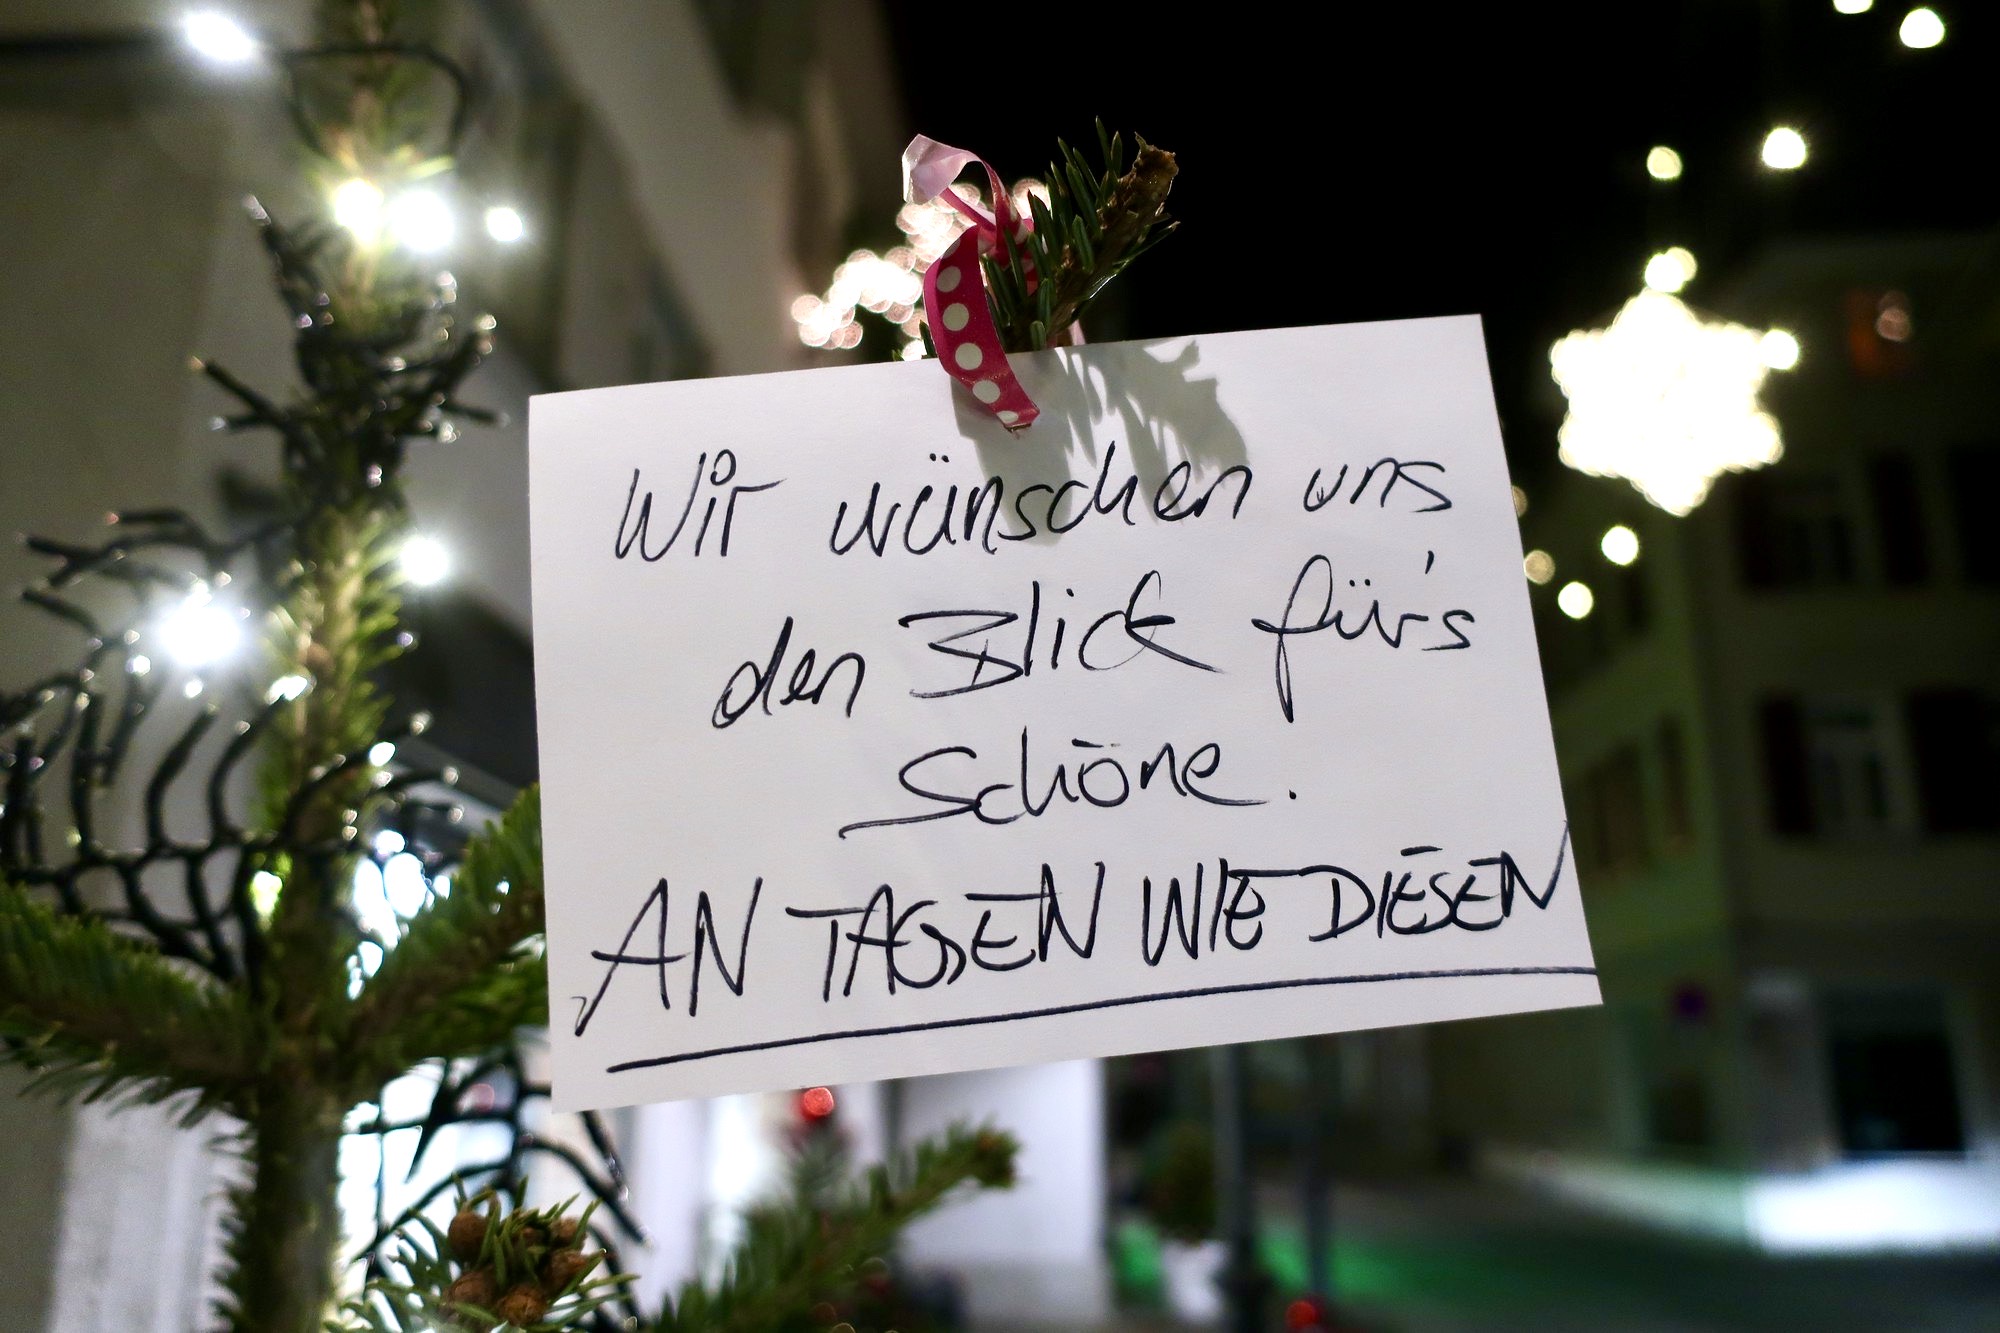 Wir wünschen uns
den Blick für's
Schöne.
AN TAGEN WIE DIESEN